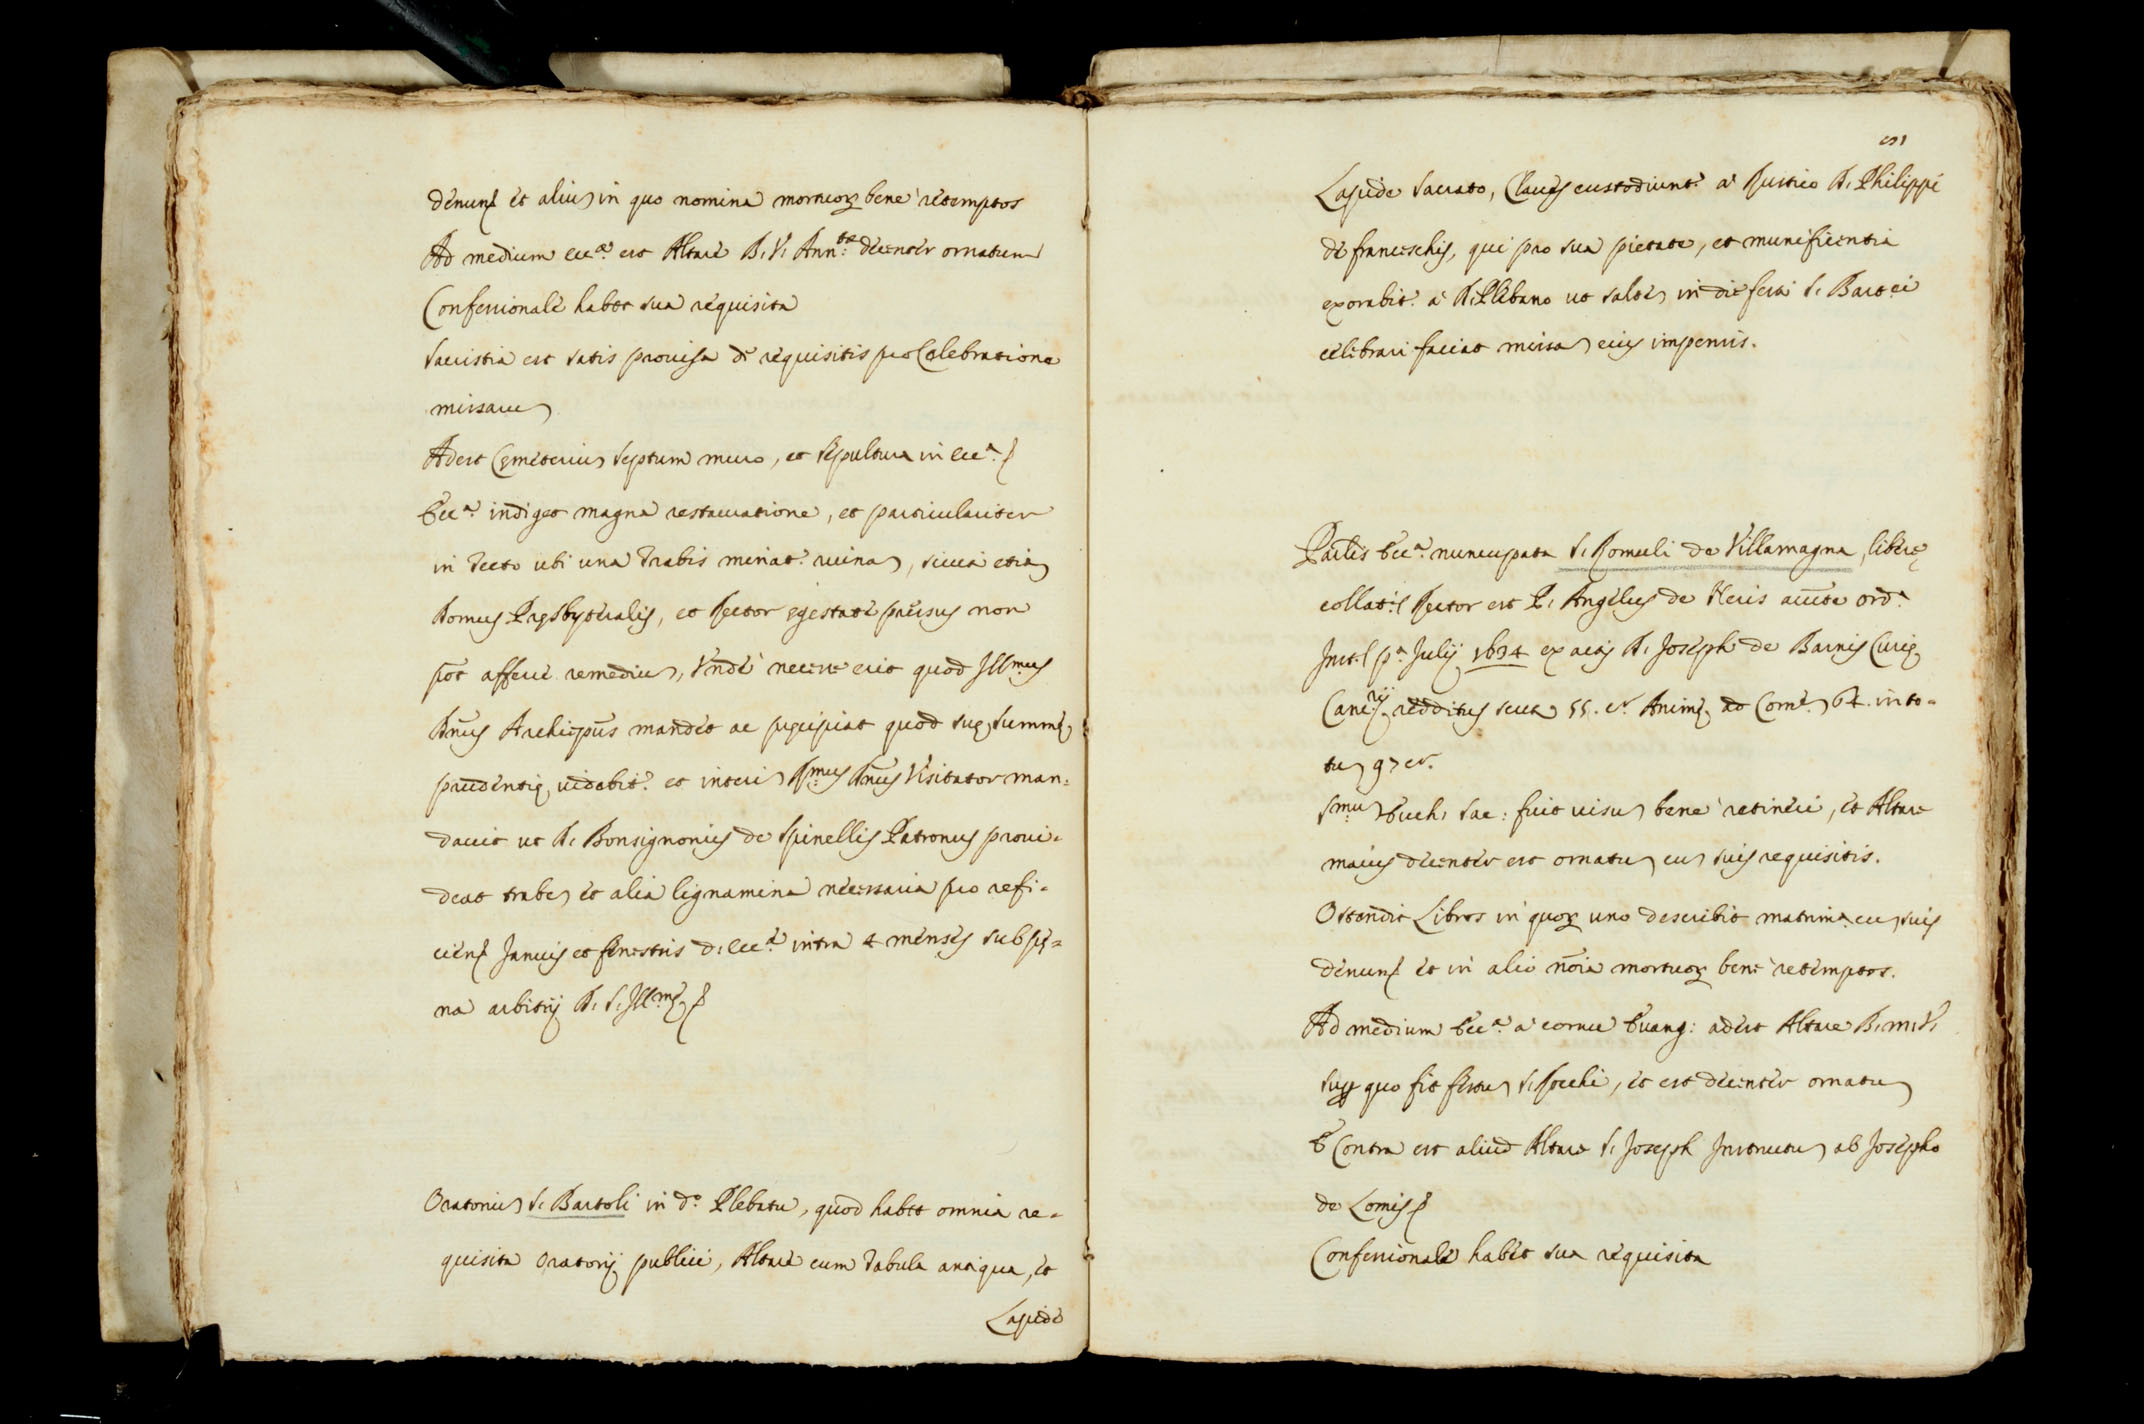 denuñ et aliũ in quo nomina mortuoꝝ bene retemptos
Ad medium ecc.ᵃᵉ est Altare B. V. Ann.ᵗᵃᵉ decenter ornatum
Confessionale habet sua requisita
Sacristia est satis provisa de requisitis pro Celebratione
missarũ
Adest Cęmeteriũ septum muro, et sepultura in ecc.ᵃ
Ecc.ᵃ indiget magna restauratione, et particulariter
in Tecto ubi una Trabis minat.ʳ ruinã, sicuti etiã
Domus Pręsbyteralis, et Rector egestate pręssus non
pot afferre remediũ, Unde necesse erit quod Ill.ᵐᵘˢ
D̃nus Archiep̃us mandet ac pręcipiat quod suę summę
prudentię videbit.ʳ et interĩ R.ᵐᵘˢ D̃nus Visitator man:
davit ut D. Bonsignorius de Spinellis Patronus provi:
deat trabẽ et alia lignamina necessaria pro refi:
cieñ Januis et fenestris d. ecc.ᵉ intra 4 menses sub pę=
na arbitrij D. S. Ill.ᵐę
Oratoriũ S. Bartoli in d.º Plebatu, quod habet omnia re=
quisita oratorij publici, Altare cum Tabula antiqua, et
Lapide
Lapide sacrato, Claves custodiunt.ʳ a Rustico D. Philippi
de franceschis, qui pro sua pietate, et munificentia
exorabit.ʳ a D. Plebano ut saltẽ in die festi S. Bart.ei
celebrari faciat missã eius impensis.
Par̃lis Ecc.ᵃ nuncupata S. Romuli de Villamagna, liberę
collat.ˢ Rector est P. Angelus de Neris auc̃te ord.ᵃ
Inst.ˢ p.ᵃ Julij 1634 ex actis D. Joseph de Barnis Curię
Canc.ʳⁱʲ redditus scut. 55. cr. Animę ad Com.ᵉ 64. in to=
tũ 97 cr.
S.ᵐᵘ Euch. Sac: fuit visũ bene retineri, et Altare
maius decenter est ornatũ cũ suis requisitis.
Ostendit Libros in quoꝝ uno describit matrim.ᵃ cũ suis
denuñ et in alio nõia mortuoꝝ bene retemptos.
Ad medium Ecc.ᵃ a cornu Evang: adest Altare B. M. V.
sup quo fit festũ S. Rocchi, et est decenter ornatũ
E Contra est aliud Altare S. Joseph Instructũ ab Josepho
de Lomis
Confessionale habet sua requisita